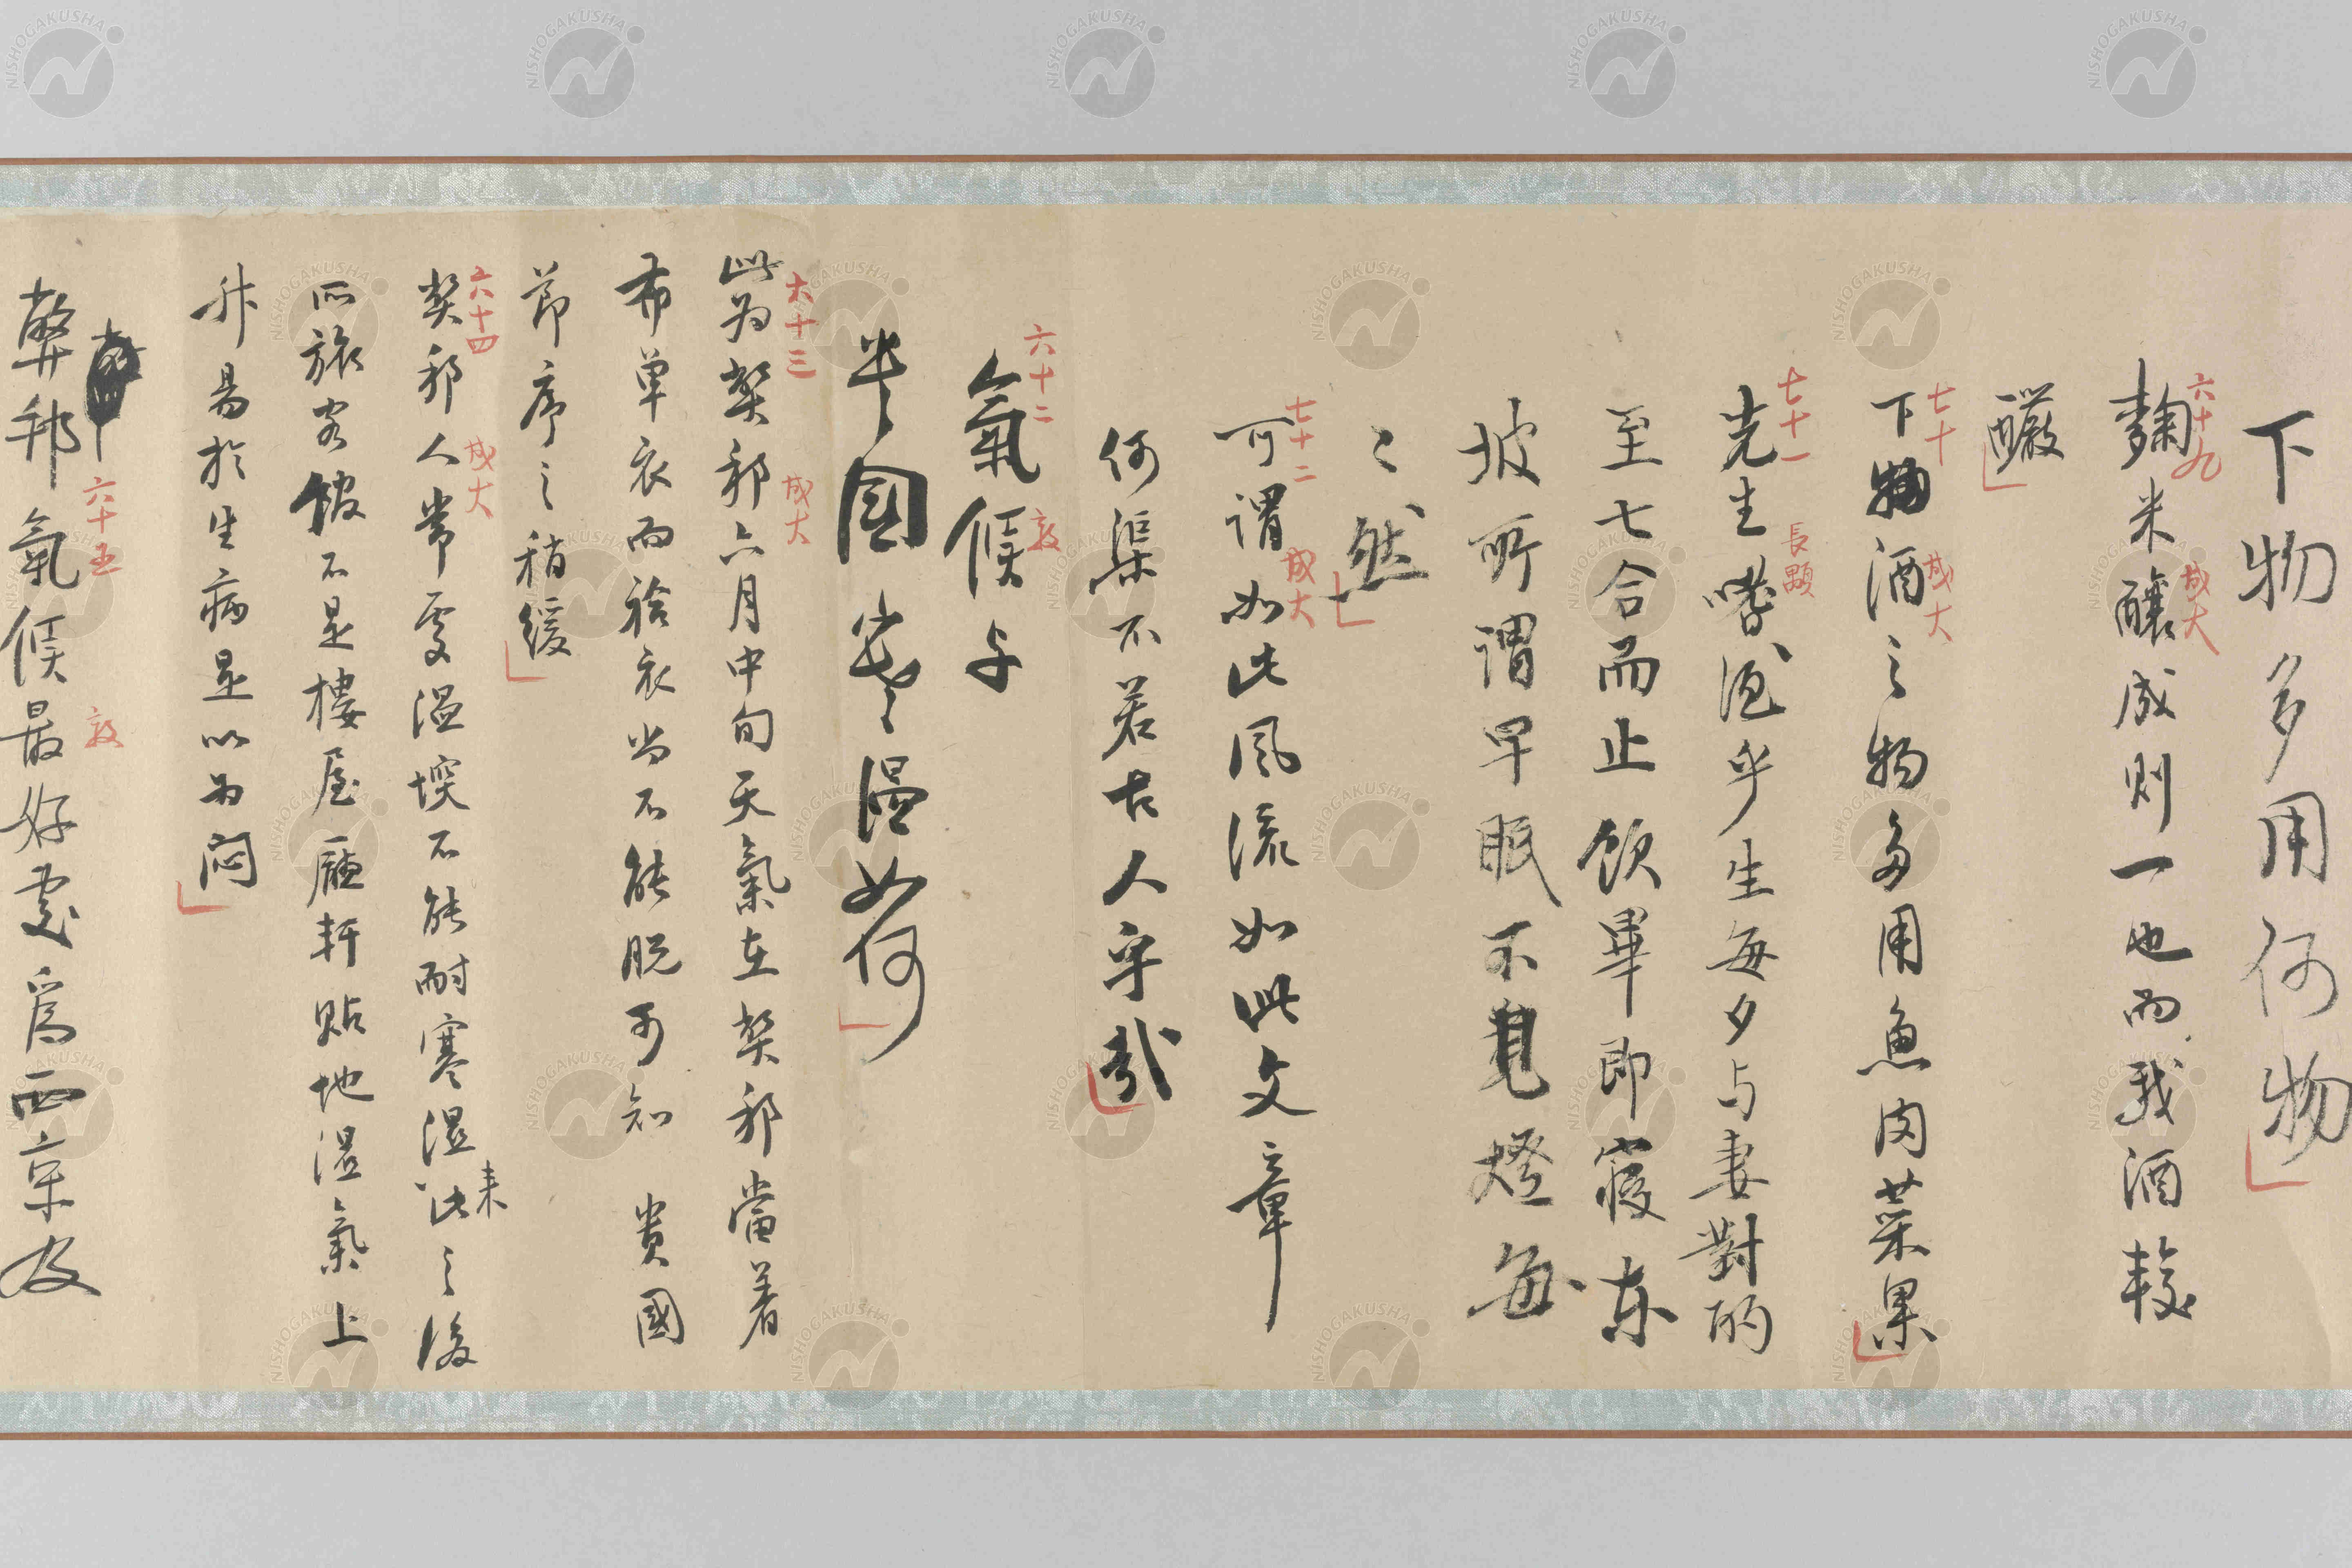 下物多用何物
六十九 成大
麹米釀成則一也而我酒較
釅
七十 成大
下物酒之物多用魚肉菜果
七十一 長顥
先生嗜酒乎生每夕与妻對酌
至七合而止飲畢即寢東
坡所謂早眠不見燈每
〻然
七十二 成大
可謂如此風流如此文章
何渠不若古人乎哉
六十二 敦
氣候与
半國寒溫如何
六十三 成大
此為弊邦六月中旬天氣在弊邦當着
布單衣而袷衣尚不能脱可知 貴國
節序之稍緩
六十四 成大
弊邦人常處溫堗不能耐寒濕来此之後
所旅客館不是樓屋廳軒貼地濕氣上
升易於生病是以為悶
六十五 敦
弊邦氣候最好處爲西京及
NISHOGAKUSHA